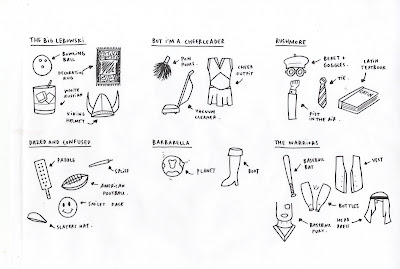 THE BIG LEBOWSKI
BOWLING
BALL
DECORATIVE
RUG
WHITE
RUSSIAN
VIKING
HELMET
BUT I'M A CHEERLEADER
POM
POMS.
CHEER
OUTFIT
VACUUM
CLEANER.
RUSHMORE
BERET +
GOGGLES.
TIE.
LATIN
TEXTBOOK.
FIST
IN THE AIR.
DAZED AND CONFUSED
PADDLE
SPLIFF
AMERICAN
FOOTBALL.
SMILEY FACE
SLATERS HAT.
BARBARELLA
PLANET
BOOT
THE WARRIORS
BASEBALL
BAT
VEST
BOTTLES
BASEBALL
FURY.
HEAD
DRESS